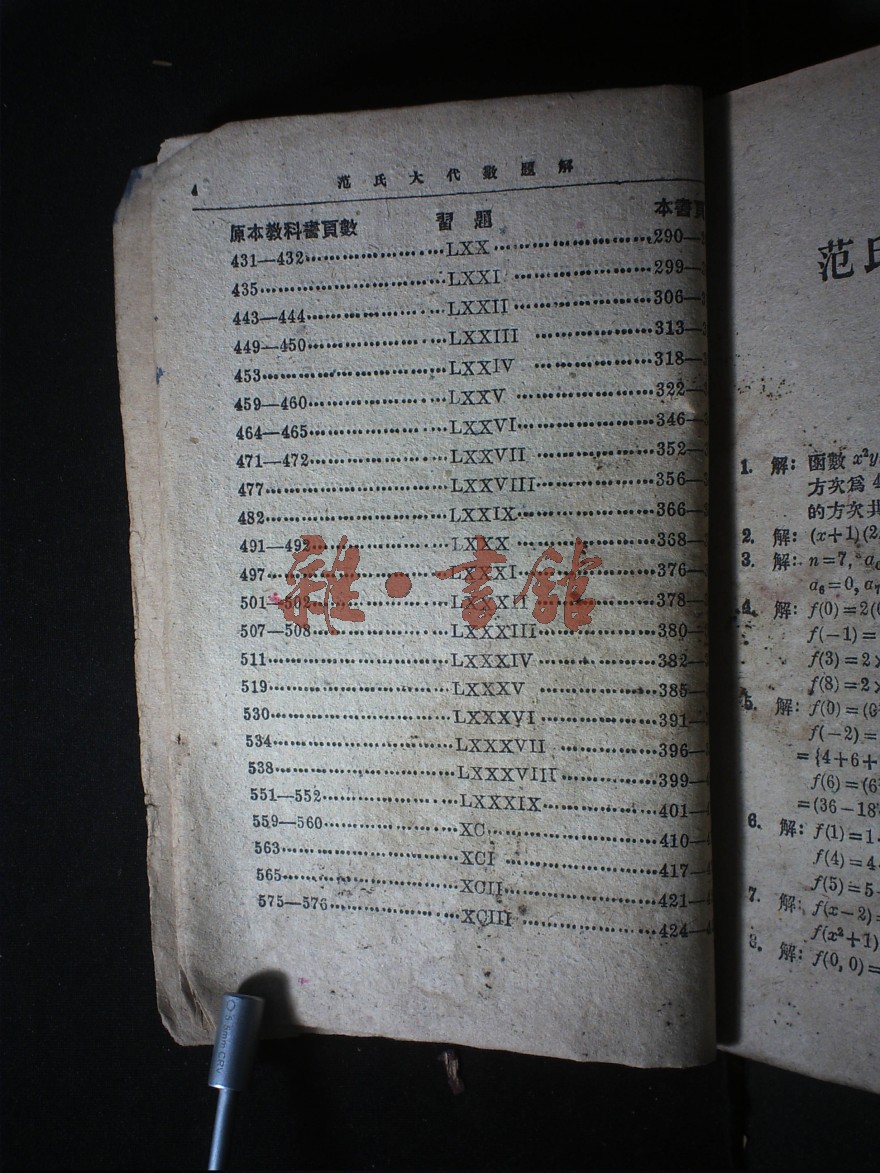 4 范氏大代數題解
原本教科書頁數 習題 本書頁
431—432 LXX 290—
435 LXXI 299—
443—444 LXXII 306—
449—450 LXXIII 313—
453 LXXIV 318—
459—460 LXXV 322—
464—465 LXXVI 346—
471—472 LXXVII 352—
477 LXXVIII 356—
482 LXXIX 366—
491—492 LXXX 368—
497 LXXXI 376—
501—502 LXXXII 378—
507—508 LXXXIII 380—
511 LXXXIV 382—
519 LXXXV 385—
530 LXXXVI 391—
534 LXXXVII 396—
538 LXXXVIII 399—
551—552 LXXXIX 401—
559—560 XC 410—
563 XCI 417—
565 XCII 421—
575—576 XCIII 424—
雜·書館
范氏
1. 解: 函數 x²y
方次爲 4
的方次共
2. 解: (x+1)(2
3. 解: n=7,
a₆=0, a₇
4. 解: f(0)=2(
f(−1)=
f(3)=2×
f(8)=2×
5. 解: f(0)=(
f(−2)=
={4+6+
f(6)=(6
=(36−18
6. 解: f(1)=1
f(4)=4
f(5)=5
7. 解: f(x−2)=
f(x²+1)
8. 解: f(0, 0)=
5.5mm CRV